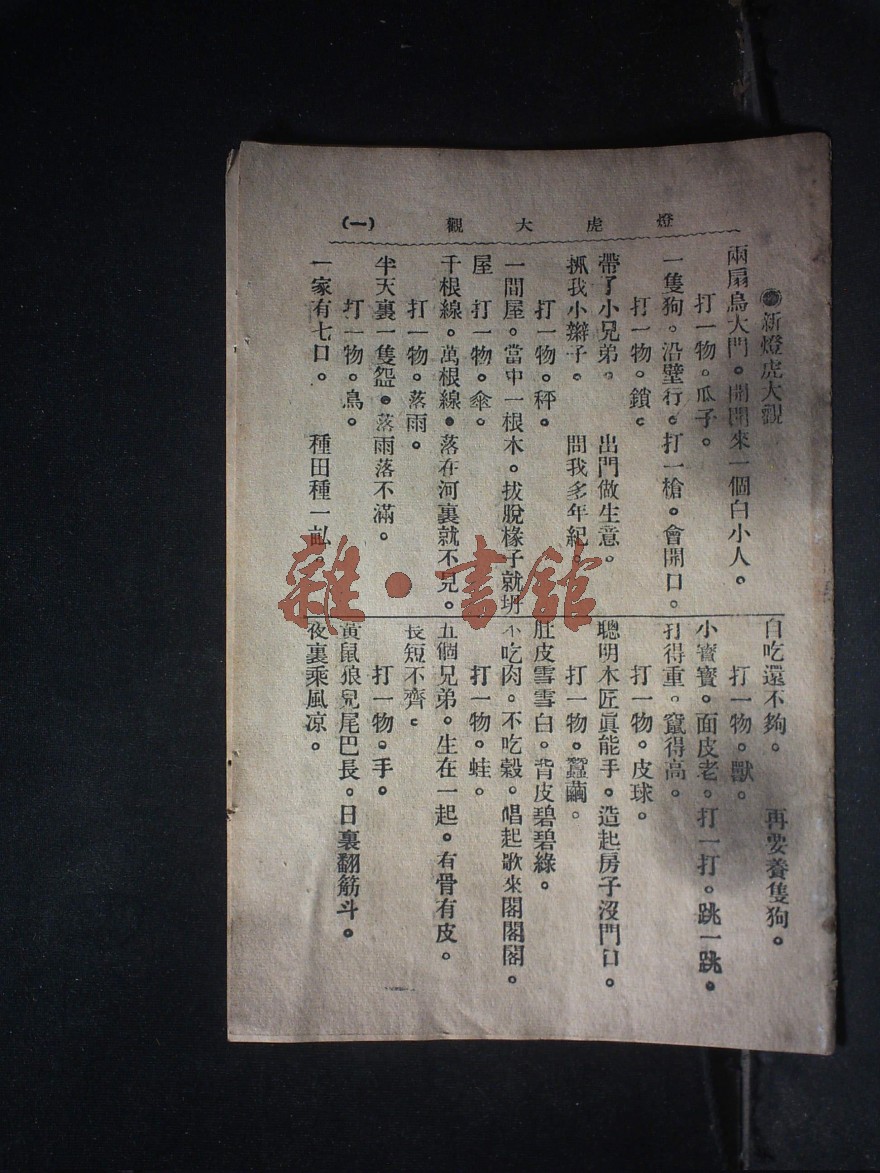 燈虎大觀 (一)
●新燈虎大觀
兩扇烏大門。開開來一個白小人。
打一物。瓜子。
一隻狗。沿壁行。打一槍。會開口。
打一物。鎖。
帶了小兄弟。 出門做生意。
抓我小辮子。 問我多年紀。
打一物。秤。
一間屋。當中一根木。拔脫椽子就坍
屋 打一物。傘。
千根線。萬根線。落在河裏就不見。
打一物。落雨。
半天裏一隻盌。落雨落不滿。
打一物。鳥。
一家有七口。 種田種一畝。
白吃還不夠。 再要養隻狗。
打一物。獸。
小寶寶。面皮老。打一打。跳一跳。
打得重。竄得高。
打一物。皮球。
聰明木匠眞能手。造起房子沒門口。
打一物。蠶繭。
肚皮雪雪白。背皮碧碧綠。
不吃肉。不吃穀。唱起歌來閣閣閣。
打一物。蛙。
五個兄弟。生在一起。有骨有皮。
長短不齊。
打一物。手。
黃鼠狼兒尾巴長。日裏翻筋斗。
夜裏乘風凉。
雜·書館